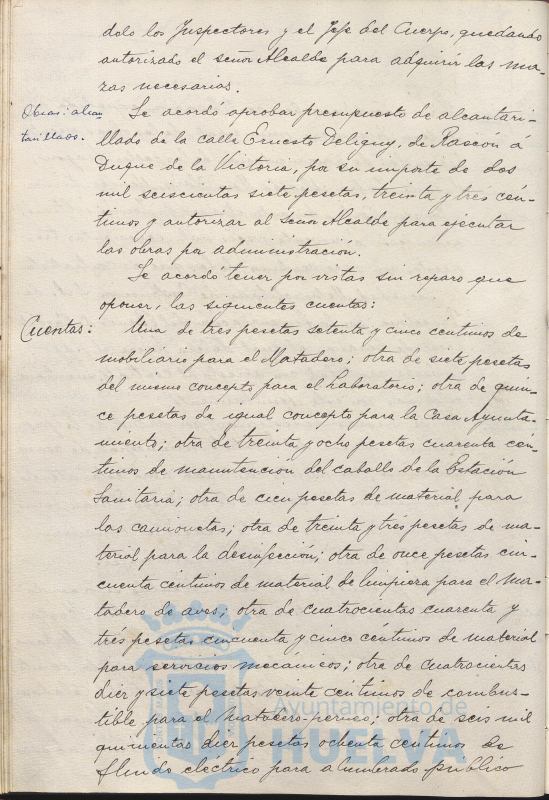 dolo los Inspectores y el Jefe del Cuerpo, quedando
autorizado el señor Alcalde para adquirir las ma-
zas necesarias.
Obras: alcan
tarillados.
Se acordó aprobar presupuesto de alcantari-
llado de la calle Ernesto Deligny, de Rascón á
Duque de la Victoria, por su importe de dos
mil seiscientas siete pesetas, treinta y tres cén-
timos y autorizar al señor Alcalde para ejecutar
las obras por administración.
Se acordó tener por vistas sin reparo que
oponer, las siguientes cuentas:
Cuentas:
Una de tres pesetas setenta y cinco céntimos de
mobiliario para el Matadero; otra de siete pesetas
del mismo concepto para el Laboratorio; otra de quin-
ce pesetas de igual concepto para la Casa Ayunta-
miento; otra de treinta y ocho pesetas cuarenta cén-
timos de manutención del caballo de la Estación
Sanitaria; otra de cien pesetas de material para
las camionetas; otra de treinta y tres pesetas de ma-
terial para la desinfección; otra de once pesetas cin-
cuenta céntimos de material de limpieza para el Ma-
tadero de aves; otra de cuatrocientas cuarenta y
tres pesetas cincuenta y cinco céntimos de material
para servicios mecánicos; otra de cuatrocientas
diez y siete pesetas veinte céntimos de combus-
tible para el matadero-; otra de seis mil
quinientas diez pesetas ochenta céntimos de
fluido eléctrico para alumbrado público
Ayuntamiento de
HUELVA